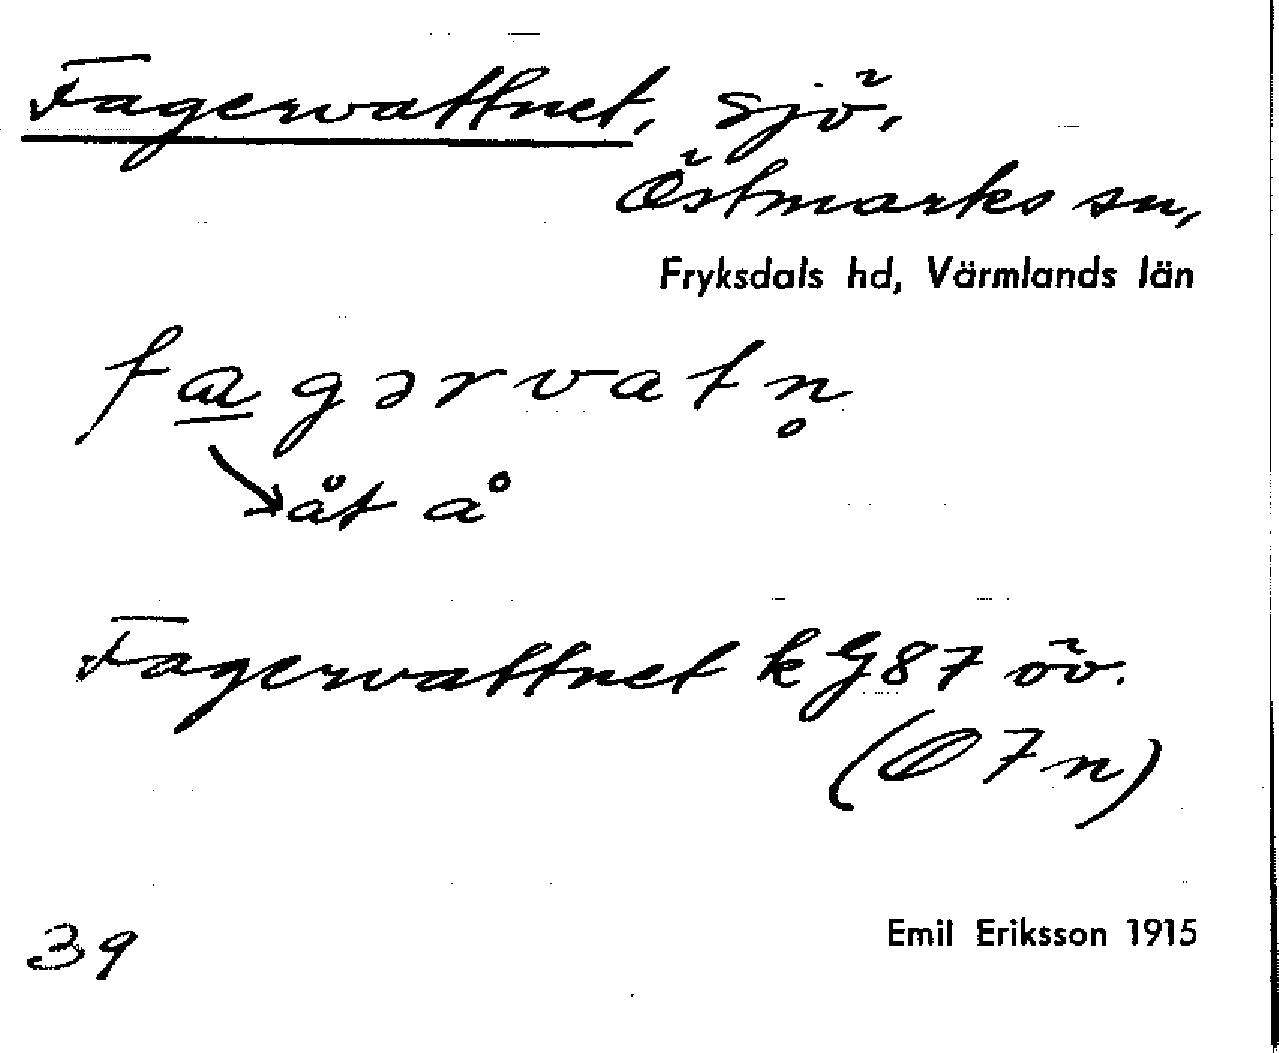 Fagervattnet, sjö,
Östmarks sn,
Fryksdals hd, Värmlands län
fagərvatn̥
åt å
Fagervattnet kG87 öv.
(Ø7n)
39
Emil Eriksson 1915